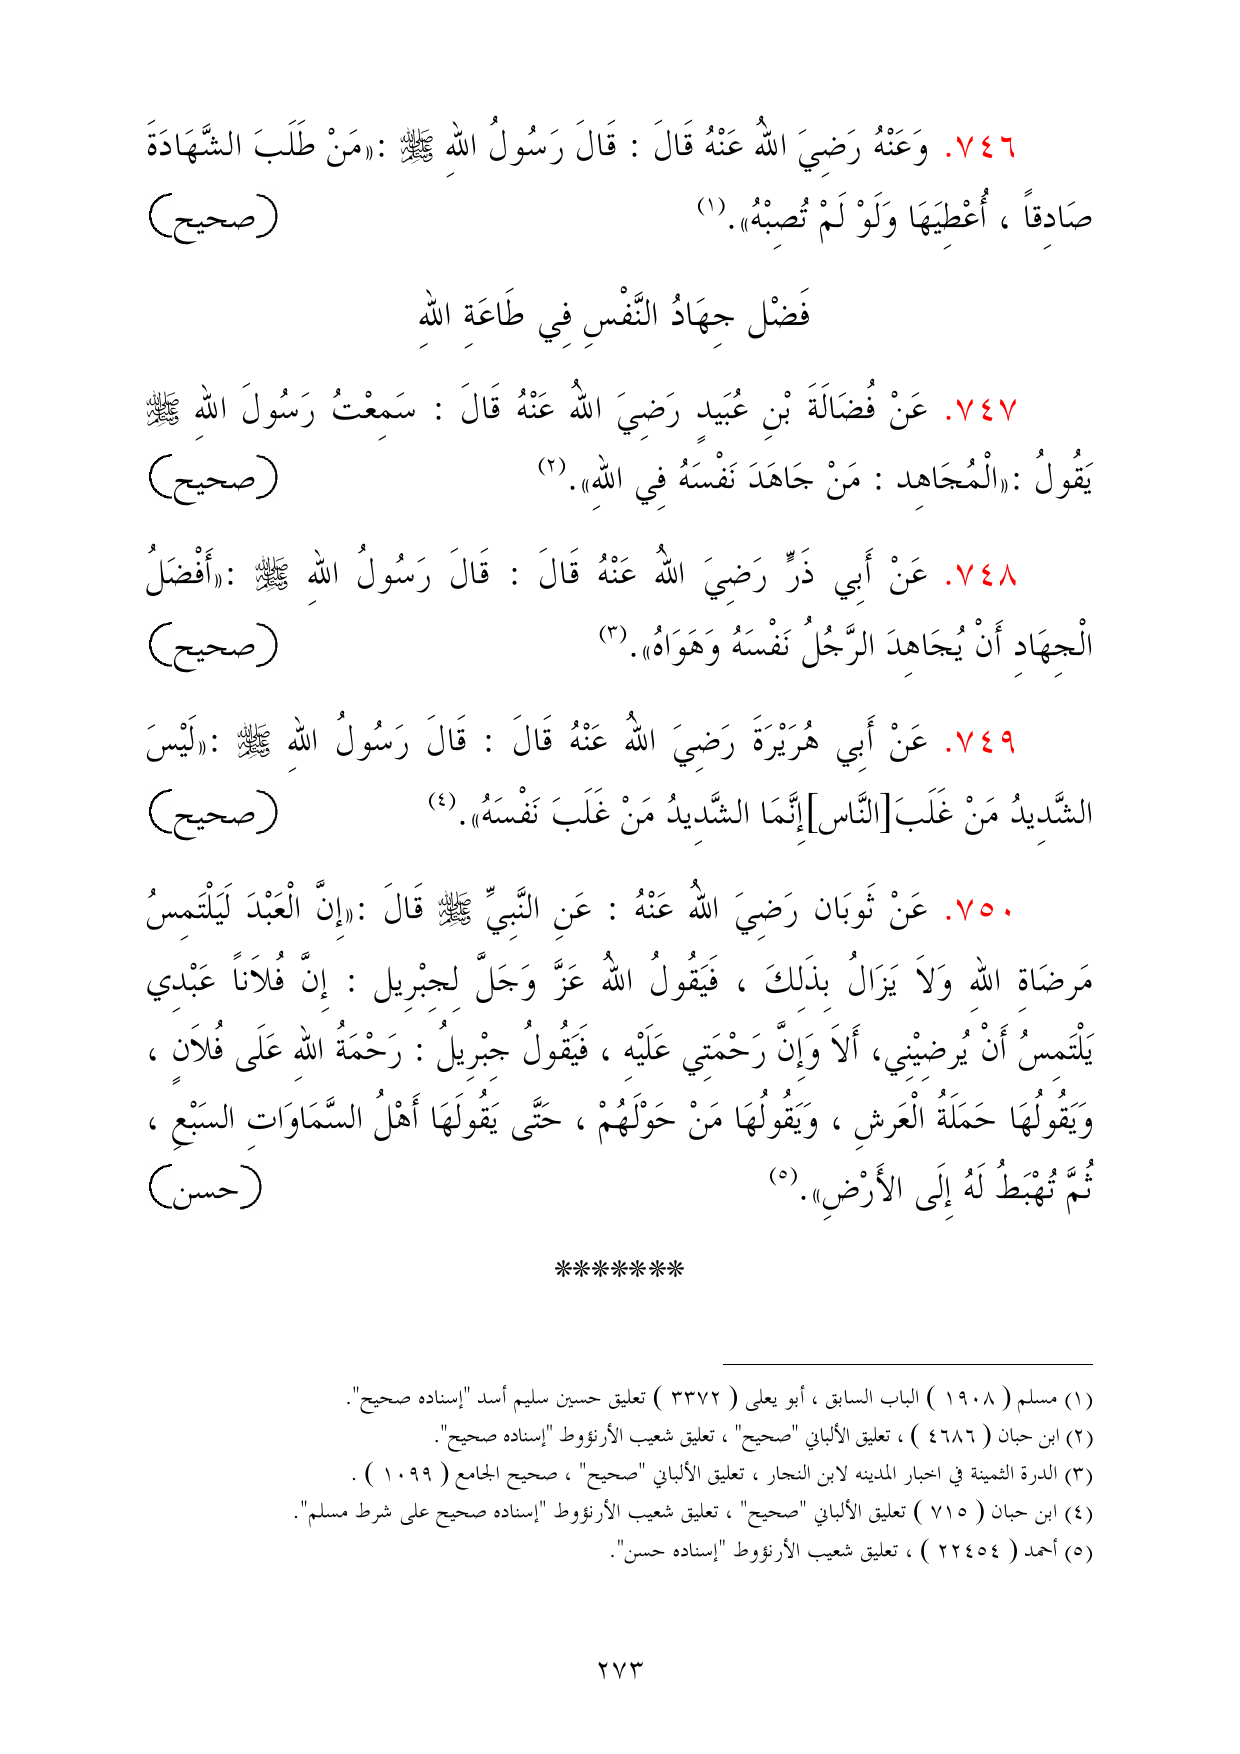 ٧٤٦. وَعَنْهُ رَضِيَ اللهُ عَنْهُ قَالَ : قَالَ رَسُولُ اللهِ ﷺ :«مَنْ طَلَبَ الشَّهَادَةَ
صَادِقاً ، أُعْطِيَهَا وَلَوْ لَمْ تُصِبْهُ».(١) (صحيح)
فَضْل جِهَادُ النَّفْسِ فِي طَاعَةِ اللهِ
٧٤٧. عَنْ فُضَالَةَ بْنِ عُبَيدٍ رَضِيَ اللهُ عَنْهُ قَالَ : سَمِعْتُ رَسُولَ اللهِ ﷺ
يَقُولُ :«الْمُجَاهِد : مَنْ جَاهَدَ نَفْسَهُ فِي اللهِ».(٢) (صحيح)
٧٤٨. عَنْ أَبِي ذَرٍّ رَضِيَ اللهُ عَنْهُ قَالَ : قَالَ رَسُولُ اللهِ ﷺ :«أَفْضَلُ
الْجِهَادِ أَنْ يُجَاهِدَ الرَّجُلُ نَفْسَهُ وَهَوَاهُ».(٣) (صحيح)
٧٤٩. عَنْ أَبِي هُرَيْرَةَ رَضِيَ اللهُ عَنْهُ قَالَ : قَالَ رَسُولُ اللهِ ﷺ :«لَيْسَ
الشَّدِيدُ مَنْ غَلَبَ[النَّاس]إِنَّمَا الشَّدِيدُ مَنْ غَلَبَ نَفْسَهُ».(٤) (صحيح)
٧٥٠. عَنْ ثَوبَان رَضِيَ اللهُ عَنْهُ : عَنِ النَّبِيِّ ﷺ قَالَ :«إِنَّ الْعَبْدَ لَيَلْتَمِسُ
مَرضَاة اللهِ وَلاَ يَزَالُ بِذَلِكَ ، فَيَقُولُ اللهُ عَزَّ وَجَلَّ لِجِبْرِيل : إِنَّ فُلاَناً عَبْدِي
يَلْتَمِسُ أَنْ يُرضِيْنِي، أَلاَ وَإِنَّ رَحْمَتِي عَلَيْهِ ، فَيَقُولُ جِبْرِيلُ : رَحْمَةُ اللهِ عَلَى فُلاَنٍ ،
وَيَقُولُهَا حَمَلَةُ الْعَرشِ ، وَيَقُولُهَا مَنْ حَوْلَهُمْ ، حَتَّى يَقُولَهَا أَهْلُ السَّمَاوَاتِ السَبْعِ ،
ثُمَّ تُهْبَطُ لَهُ إِلَى الأَرْضِ».(٥) (حسن)
*******
(١) مسلم ( ١٩٠٨ ) الباب السابق ، أبو يعلى ( ٣٣٧٢ ) تعليق حسين سليم أسد "إسناده صحيح".
(٢) ابن حبان ( ٤٦٨٦ ) ، تعليق الألباني "صحيح" ، تعليق شعيب الأرنؤوط "إسناده صحيح".
(٣) الدرة الثمينة في اخبار المدينه لابن النجار ، تعليق الألباني "صحيح" ، صحيح الجامع ( ١٠٩٩ ) .
(٤) ابن حبان ( ٧١٥ ) تعليق الألباني "صحيح" ، تعليق شعيب الأرنؤوط "إسناده صحيح على شرط مسلم".
(٥) أحمد ( ٢٢٤٥٤ ) ، تعليق شعيب الأرنؤوط "إسناده حسن".
٢٧٣